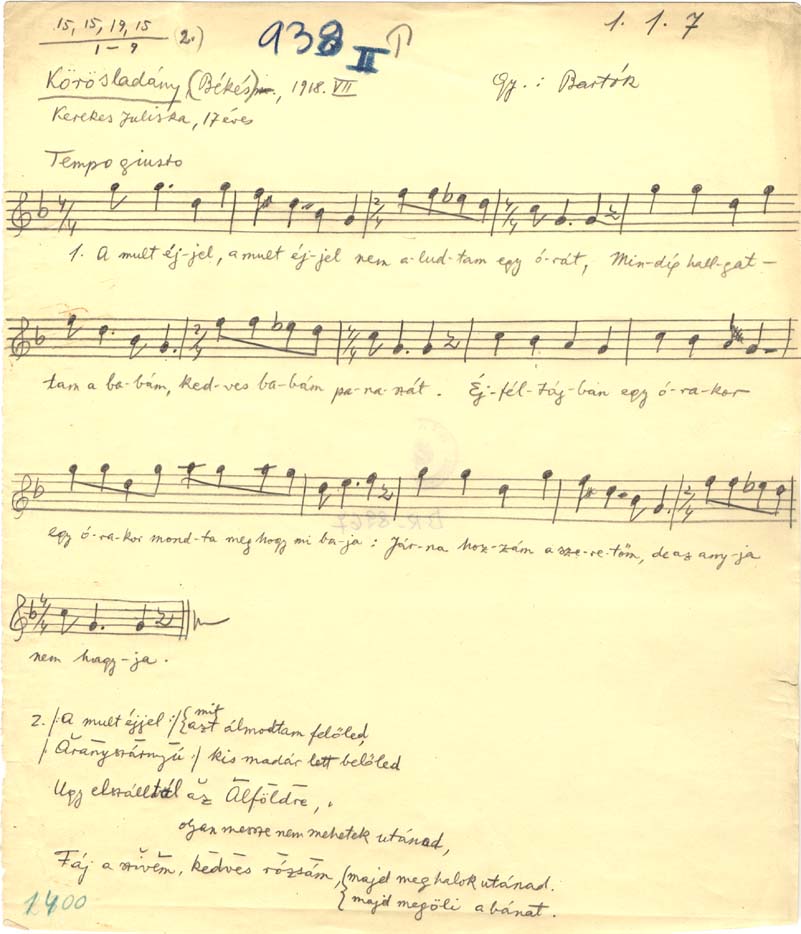 15, 15, 19, 15 (2.)
1-9
938 II
1. 1. 7
Körösladány (Békés), 1918. VII
Gy.: Bartók
Kerekes Juliska, 17 éves
Tempo giusto
4/4 2/4 4/4
1. A mult éj-jel, a mult éj-jel nem a-lud-tam egy ó-rát, Min-díg hall-gat-
2/4 4/4
tam a ba-bám, ked-ves ba-bám pa-na-szát. Éj-fél-táj-ban egy ó-ra-kor
2/4
egy ó-ra-kor mond-ta meg hogy mi ba-ja: Jár-na hoz-zám a sze-re-tőm, de az any-ja
4/4
nem hagy-ja.
2. /: A mult éjjel :/ { mit
azt álmodtam felőled,
/: Aranyszárnyú :/ kis madár lett belőled
Ugy elszálltál az Alföldre,
olyan messze nem mehetek utánad,
Fáj a szívem, kedves rózsám, { majd meghalok utánad.
{ majd megöli a bánat.
1400